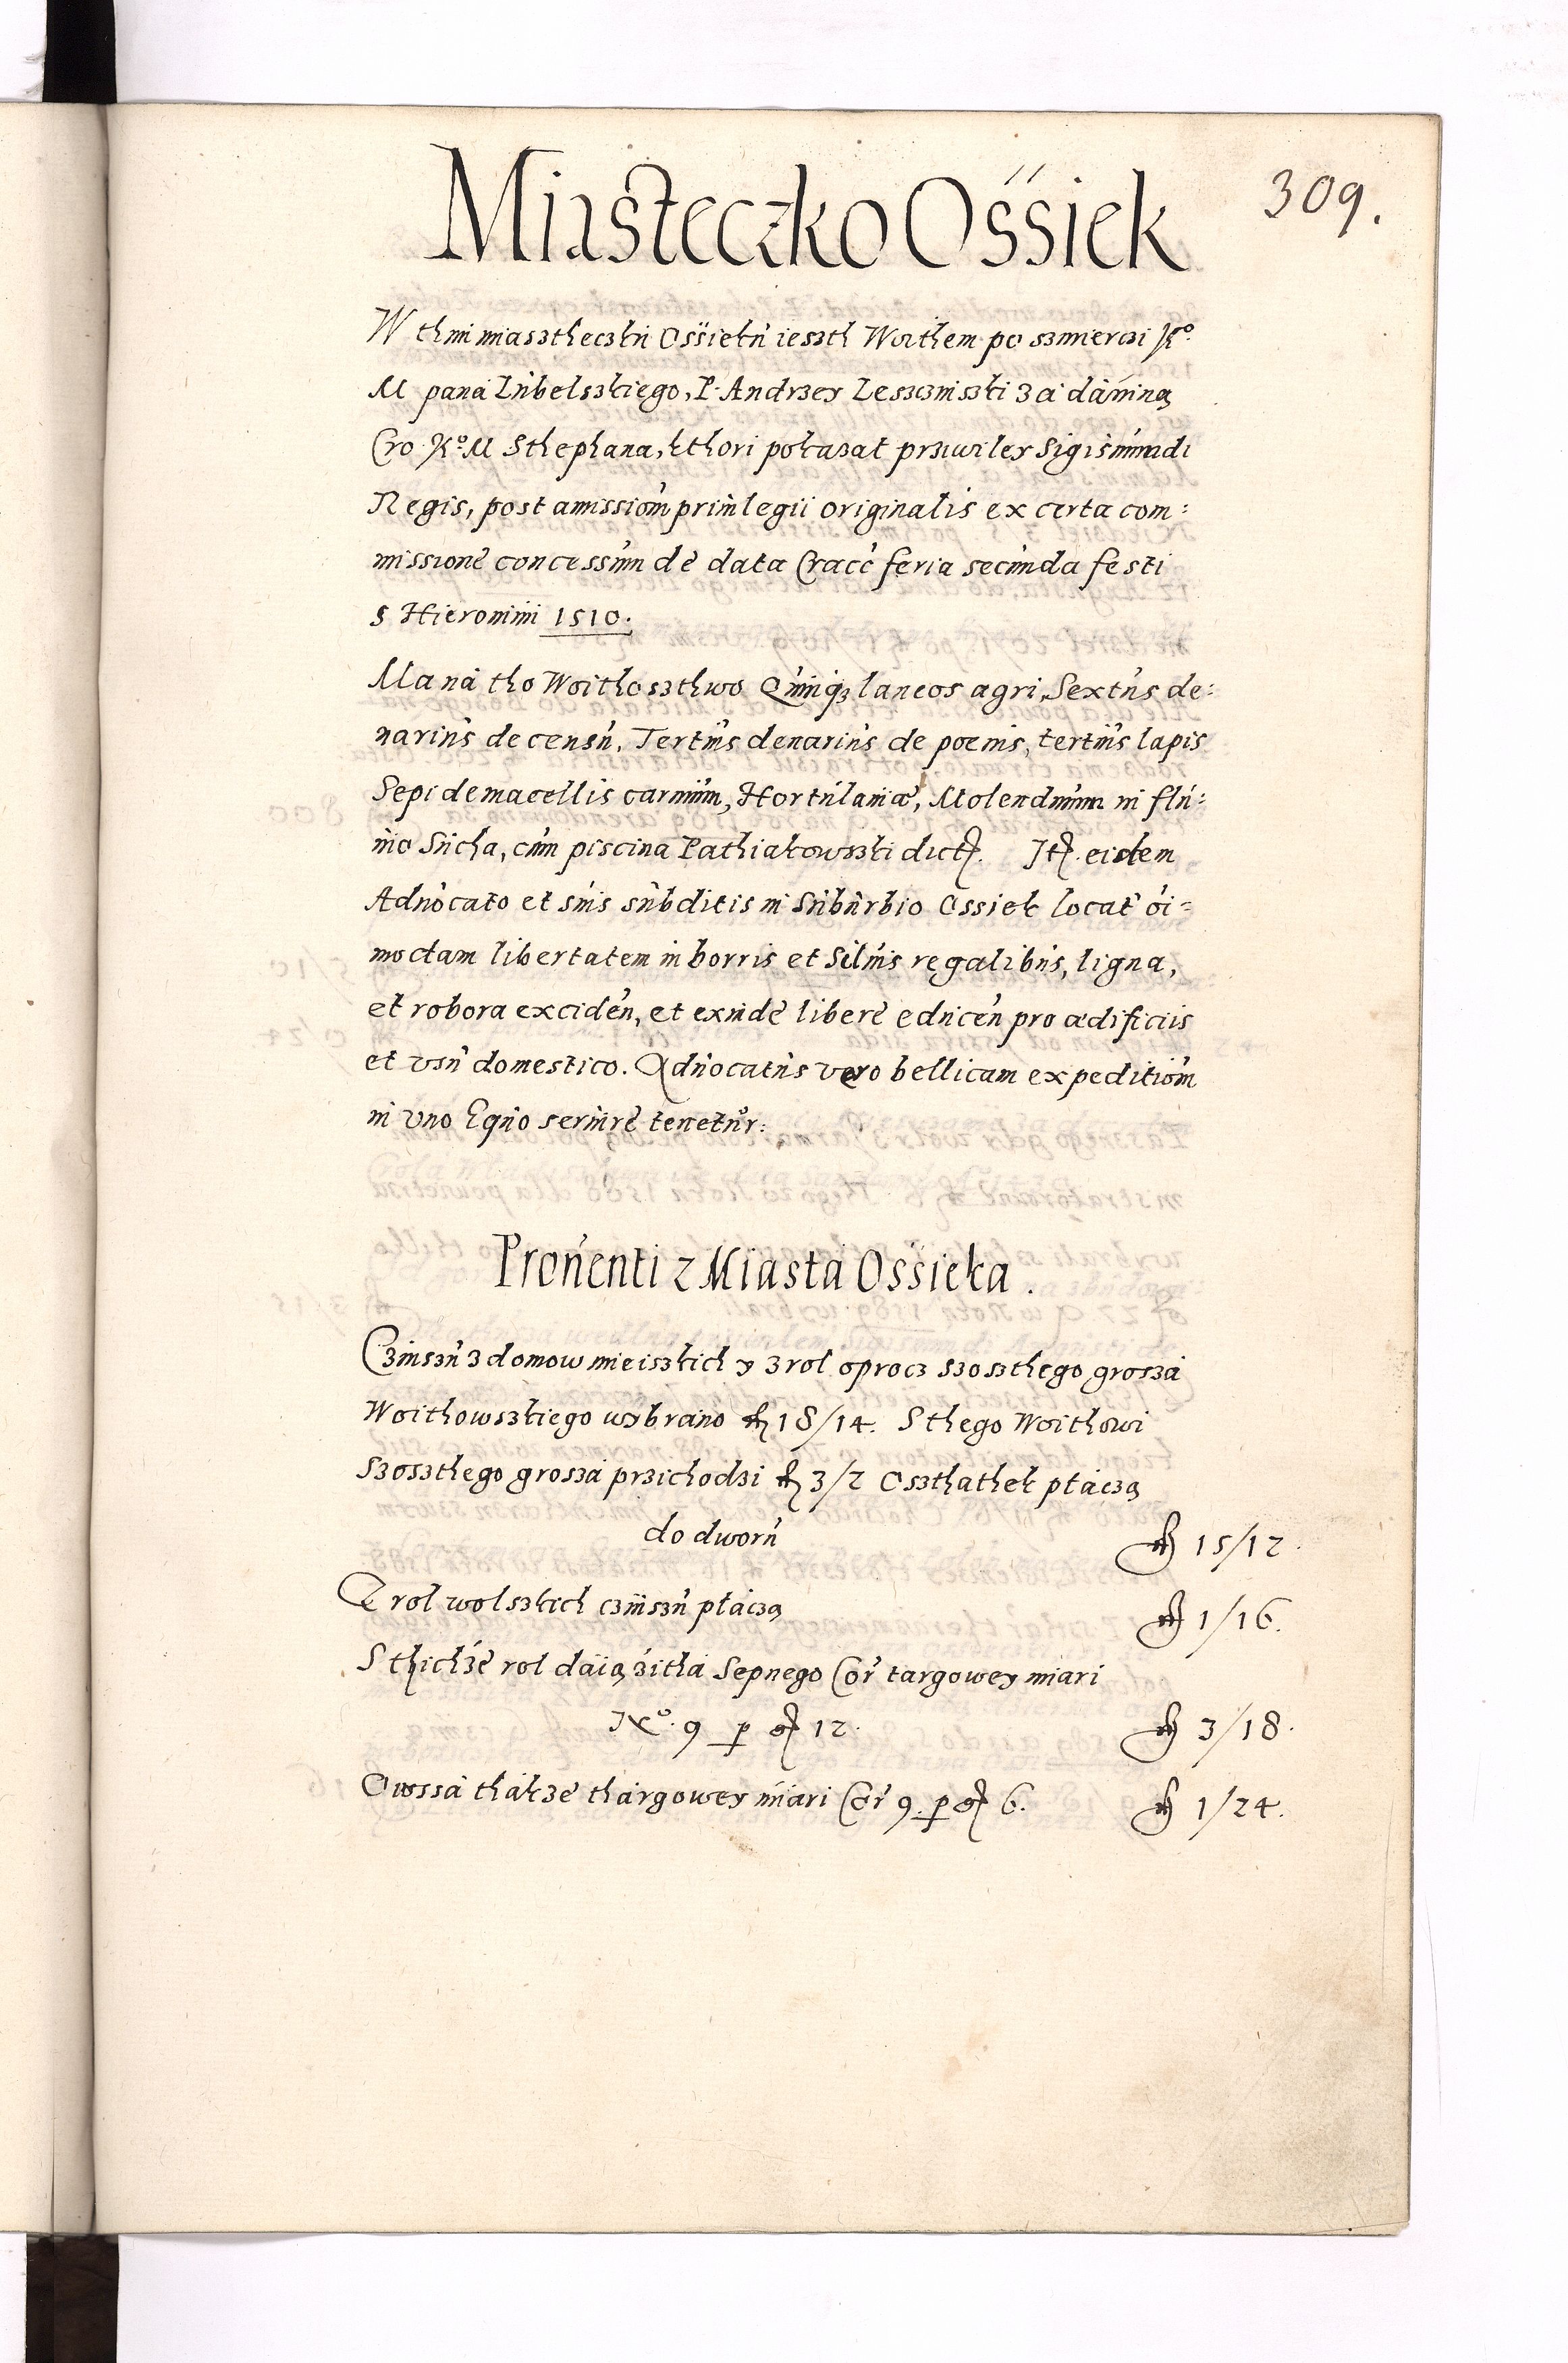 309.
Miasteczko Ossiek
W thim miasztheczku Ossieku ieszth Woithem po szmierczi Kº
M pana Lubelszkiego, P. Andrzey Leszczinszki za daniną
Cro. Kº M Sthephana, kthori pokazał prziwiley Sigismundi
Regis, post amissiom privilegii originalis ex certa com:
missione concessum de data Cracc feria secunda festi
S Hieronimi 1510.
Mana tho Woithoszthwo Quinqз laneos agri, Sextus de:
narius de censu, Tertius denarius de poenis, tertius lapis
Sepi de macellis carnium, Hortulaniæ, Molendinum in flu:
vio Sucha, cum piscina Pathiakowszki dict. It. eidem
Aduocato et suis subditis in Suburbio Ossiek locat oi:
modam libertatem in borris et Siluis regalibus, ligna,
et robora exciden, et exinde libere educen pro ædificiis
et vsu domestico. Aduocatus vero bellicam expeditiom
in vno Equo seruire tenetur.
Prouenti z Miasta Ossieka.
Czinszu z domow mieiszkich y z rol oprocz szoszthego grosza
Woithowszkiego wybrano fl 18/14. S thego Woithowi
szoszthego grosza przichodzi fl 3/2 Oszthathek płaczą
do dworu fl 15/12.
Z rol wolszkich czinszu płaczą fl 1/16.
S thichże rol daią żitha Sepnego Cor targowey miari
Nº. 9 p g 12. fl 3/18.
Owssa thakże thargowey miari Cor 9. p g 6. fl 1/24.